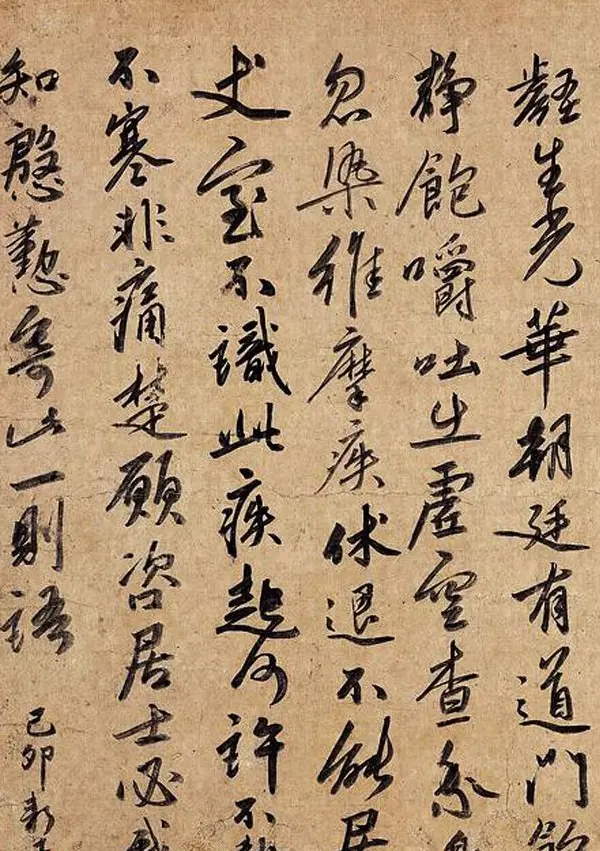 壑生光華朝廷有道門
静飽嚼吐生虛空查系
忽染維摩疾休退不能居
丈室不識此疾起何許不
不寒非痛楚願咨居士必
知慇懃寄此一則語
己卯新